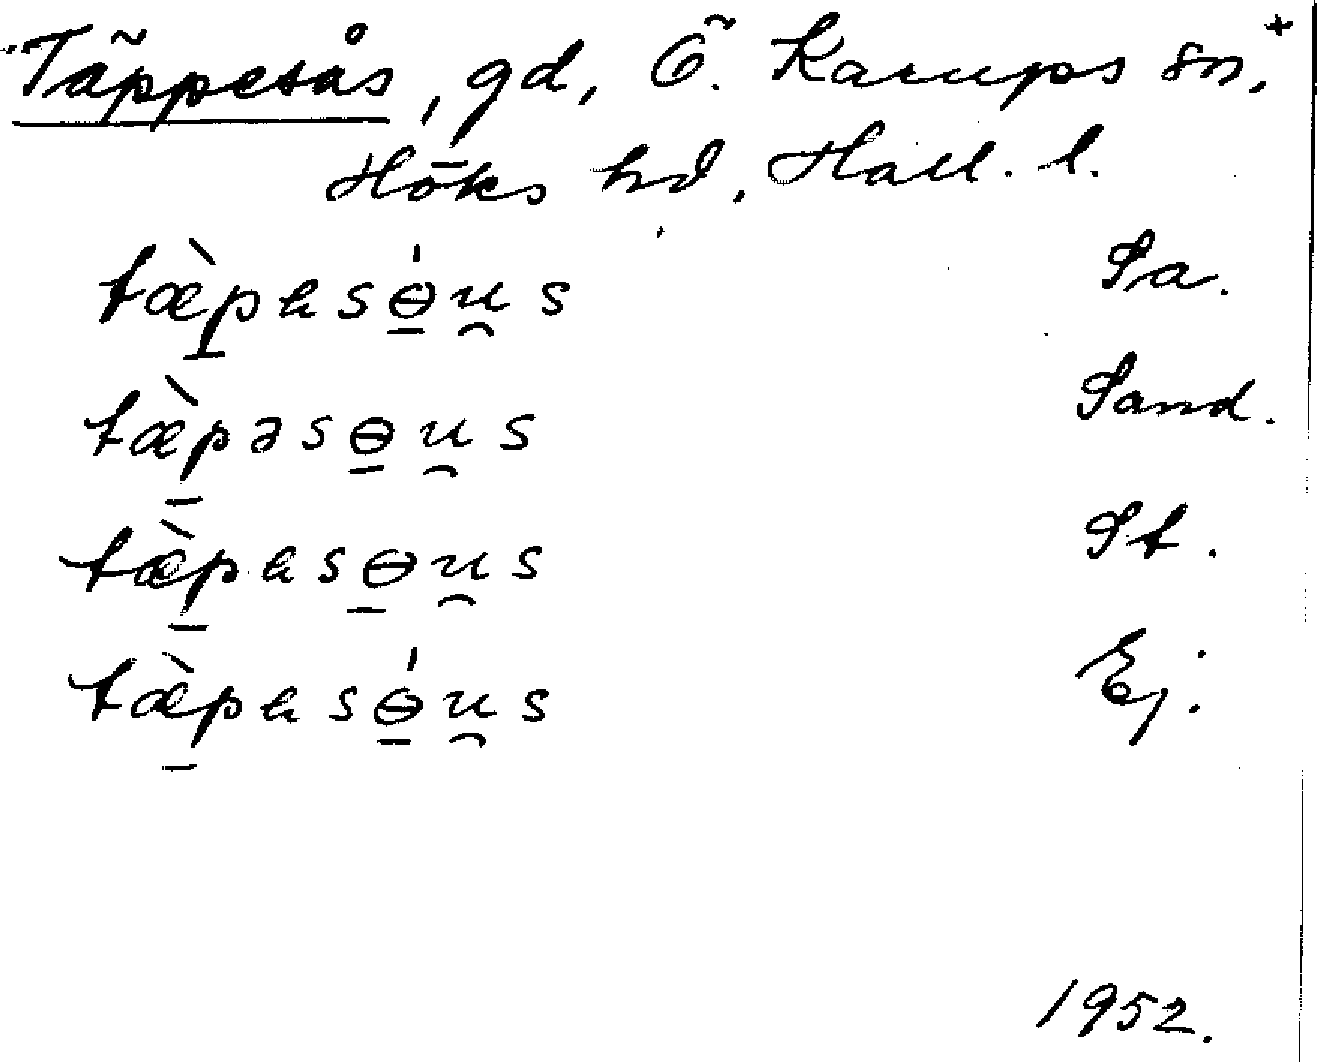 Täppesås, gd, Ö. Karups sn,+
Höks hd, Hall. l.
tæ̀p̱ɐsɵ̲́u̯s Sa.
tæ̀p̱əsɵ̲u̯s Sand.
tæ̀p̱ɐsɵ̲u̯s St.
tæ̀p̱ɐsɵ̲́u̯s Ej.
1952.